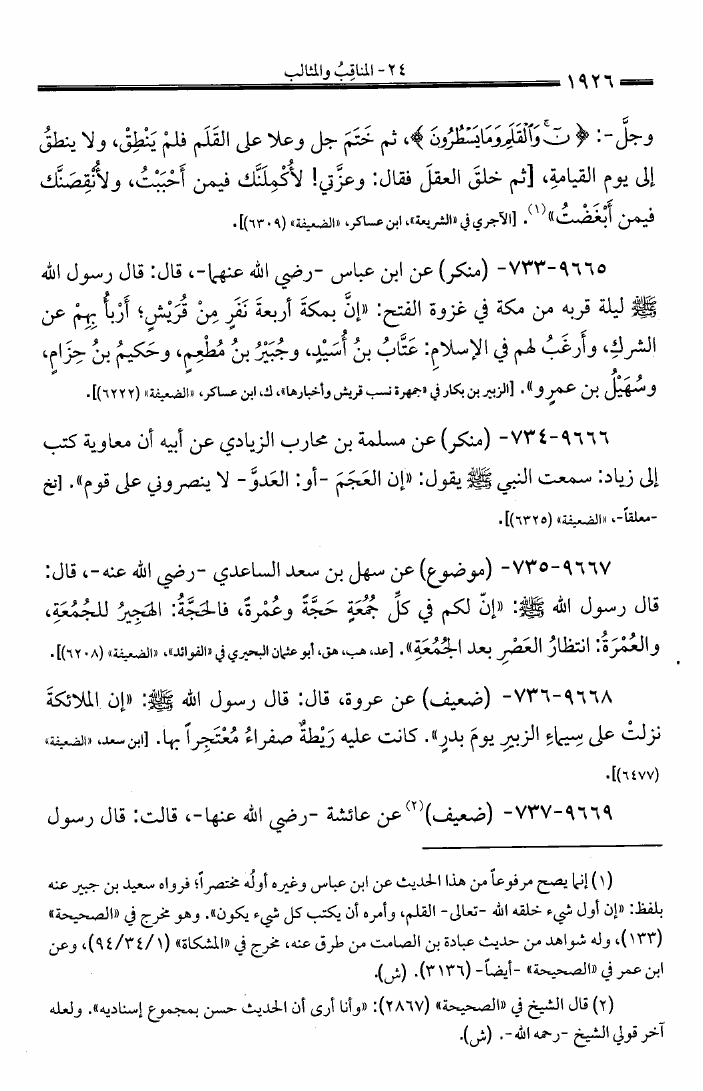 ٢٤- المناقِبُ والمثالب
١٩٢٦
وجلَّ-: ﴿نٓ ۚ وَٱلْقَلَمِ وَمَا يَسْطُرُونَ﴾، ثم خَتَمَ جل وعلا على القَلَم فلمْ يَنْطِقْ، ولا ينطقُ
إلى يوم القيامةِ، [ثم خلقَ العقلَ فقال: وعزَّتي! لأُكْمِلَنَّك فيمن أَحْبَبْتُ، ولأُنْقِصَنَّك
فيمن أَبْغَضْتُ»(١). [الآجري في «الشريعة»، ابن عساكر، «الضعيفة» (٦٣٠٩)].
٩٦٦٥-٧٣٣- (منكر) عن ابن عباس -رضي الله عنهما-، قال: قال رسول الله
ﷺ ليلة قربه من مكة في غزوة الفتح: «إنَّ بمكة أربعةَ نَفَرٍ مِنْ قُرَيْشٍ؛ أرْبأُ بِهِمْ عن
الشركِ، وأرغَبُ لهم في الإسلامِ: عَتَّابُ بنُ أُسَيْدٍ، وجُبَيْرُ بنُ مُطْعِمٍ، وحَكيمُ بنُ حِزَامٍ،
وسُهَيْلُ بن عمرٍو». [الزبير بن بكار في «جمهرة نسب قريش وأخبارها»، ك، ابن عساكر، «الضعيفة» (٦٢٢٢)].
٩٦٦٦-٧٣٤- (منكر) عن مسلمة بن محارب الزيادي عن أبيه أن معاوية كتب
إلى زياد: سمعت النبي ﷺ يقول: «إن العَجَمَ -أو: العَدوَّ- لا ينصروني على قوم». [تخ
-معلقاً-، «الضعيفة» (٦٣٢٥)].
٩٦٦٧-٧٣٥- (موضوع) عن سهل بن سعد الساعدي -رضي الله عنه-، قال:
قال رسول الله ﷺ: «إنّ لكم في كلِّ جُمُعَةٍ حَجَّةً وعُمْرةً، فالحَجَّةُ: الهَجِيرُ للجُمُعَةِ،
والعُمْرَةُ: انتظارُ العَصْرِ بعد الجُمُعَةِ». [عد، هب، هق، أبو عثمان البحيري في «الفوائد»، «الضعيفة» (٦٢٠٨)].
٩٦٦٨-٧٣٦- (ضعيف) عن عروة، قال: قال رسول الله ﷺ: «إن الملائكةَ
نزلتْ على سِيماءِ الزبيرِ يومَ بدرٍ». كانت عليه رَيْطةٌ صفراءُ مُعْتَجِراً بها. [ابن سعد، «الضعيفة»
(٦٤٧٧)].
٩٦٦٩-٧٣٧- (ضعيف)(٢) عن عائشة -رضي الله عنها-، قالت: قال رسول
(١) إنما يصح مرفوعاً من هذا الحديث عن ابن عباس وغيره أولُه مختصراً؛ فرواه سعيد بن جبير عنه
بلفظ: «إن أول شيء خلقه الله -تعالى- القلم، وأمره أن يكتب كل شيء يكون». وهو مخرج في «الصحيحة»
(١٣٣)، وله شواهد من حديث عبادة بن الصامت من طرق عنه، مخرج في «المشكاة» (١/٣٤/٩٤)، وعن
ابن عمر في «الصحيحة» -أيضاً- (٣١٣٦). (ش).
(٢) قال الشيخ في «الصحيحة» (٢٨٦٧): «وأنا أرى أن الحديث حسن بمجموع إسناديه». ولعله
آخر قولي الشيخ -رحمه الله-. (ش).